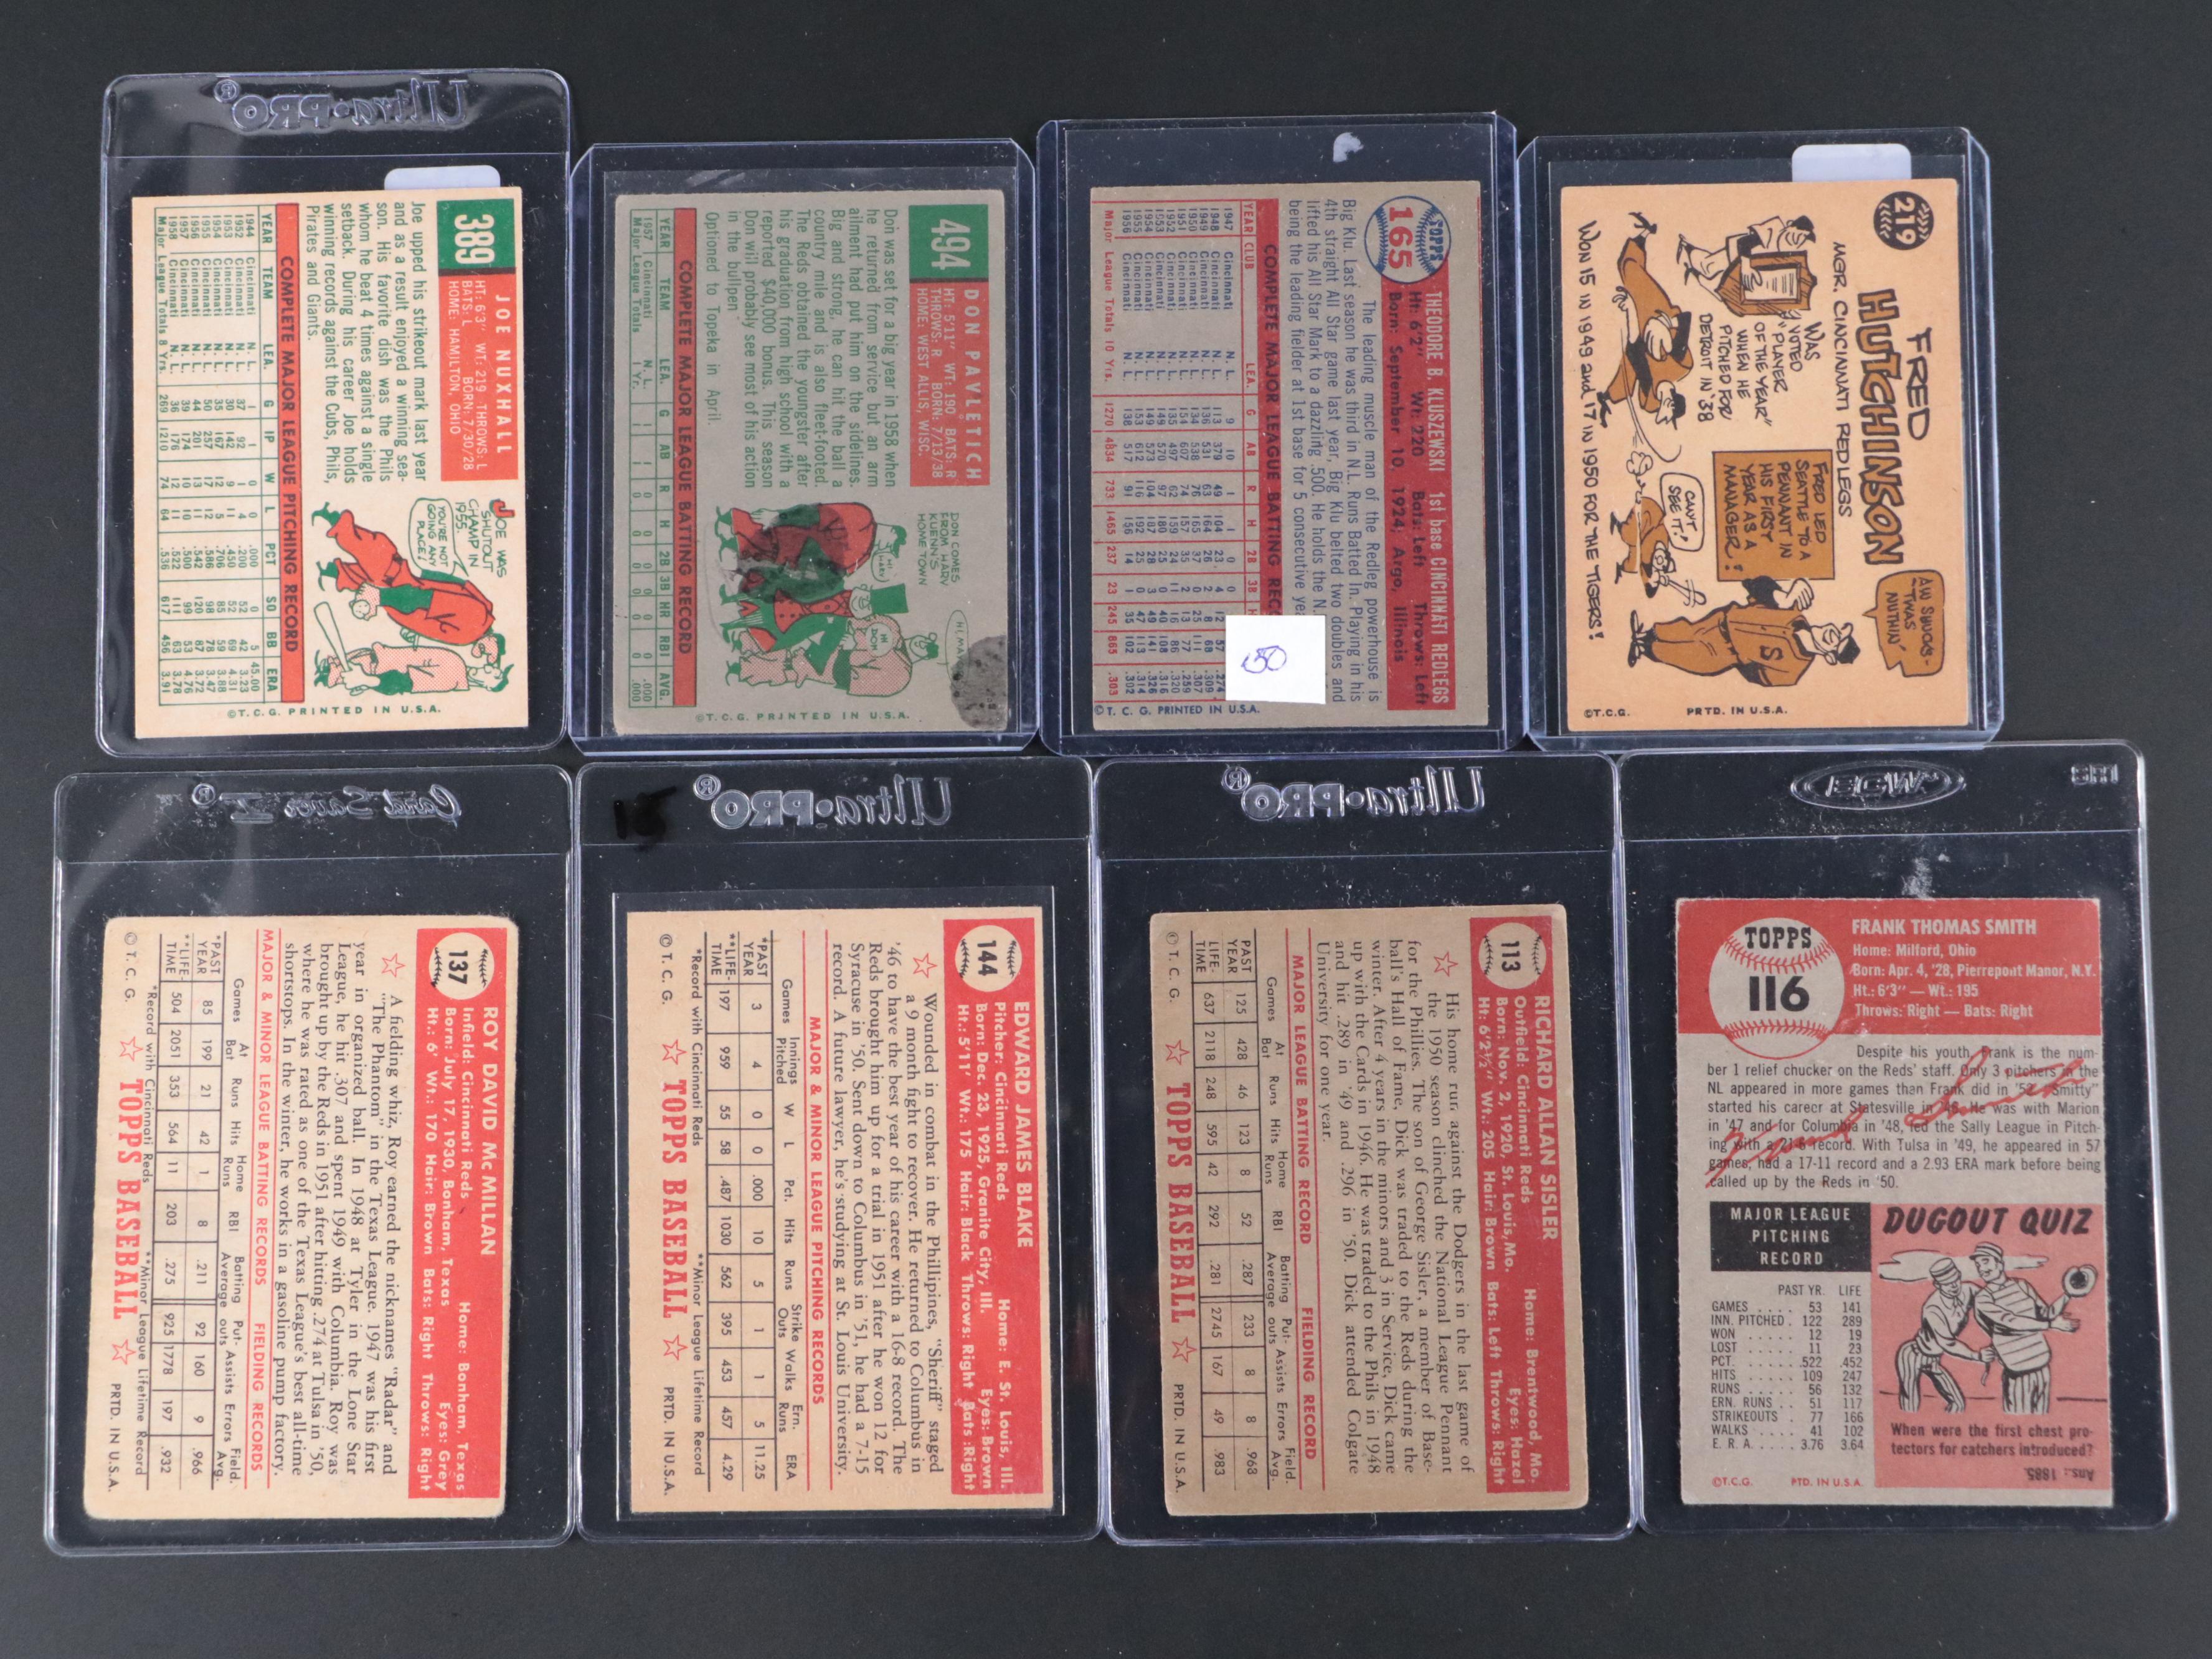 Ultra·PRO®
389
JOE NUXHALL
HT: 6'3" WT: 219 THROWS: L
BATS: L BORN: 7/30/28
HOME: HAMILTON, OHIO
Joe upped his strikeout mark last year
and as a result enjoyed a winning sea-
son. His favorite dish was the Phils
whom he beat 4 times against a single
setback. During his career Joe holds
winning records against the Cubs, Phils,
Pirates and Giants.
JOE WAS
SHUTOUT
CHAMP IN
1955.
YOU'RE NOT
GOING ANY
PLACE!
COMPLETE MAJOR LEAGUE PITCHING RECORD
YEAR TEAM LEA. G IP W L PCT SO BB ERA
1944 Cincinnati N. L. 1 1 0 0 .000 0 5 45.00
1952 Cincinnati N. L. 37 92 1 4 .200 52 42 3.23
1953 Cincinnati N. L. 30 142 9 11 .450 52 69 4.31
1954 Cincinnati N. L. 35 167 12 5 .706 85 59 3.88
1955 Cincinnati N. L. 50 257 17 12 .586 98 78 3.47
1956 Cincinnati N. L. 44 201 13 11 .542 120 87 3.72
1957 Cincinnati N. L. 39 174 10 10 .500 99 53 4.76
1958 Cincinnati N. L. 36 176 12 11 .522 111 63 3.78
Major League Totals 8 Yrs. 269 1210 74 64 .536 617 456 3.91
©T.C.G. PRINTED IN U.S.A.
494
DON PAVLETICH
HT: 5'11" WT: 190 BATS: R
THROWS: R BORN: 7/13/38
HOME: WEST ALLIS, WISC.
Don was set for a big year in 1958 when
he returned from service but an arm
ailment had put him on the sidelines.
Big and strong, he can hit the ball a
country mile and is also fleet-footed.
The Reds obtained the youngster after
his graduation from high school with a
reported $40,000 bonus. This season
Don will probably see most of his action
in the bullpen.
Optioned to Topeka in April.
DON COMES
FROM HARV
KUENN'S
HOME TOWN
COMPLETE MAJOR LEAGUE BATTING RECORD
YEAR TEAM LEA. G AB R H 2B 3B HR RBI AVG.
1957 Cincinnati N. L. 1 1 0 0 0 0 0 0 .000
Major League Totals 1 Yr. 1 1 0 0 0 0 0 0 .000
©T.C.G. PRINTED IN U.S.A.
TOPPS
165
THEODORE B. KLUSZEWSKI 1st base CINCINNATI REDLEGS
Ht: 6'2" Wt: 220 Bats: Left Throws: Left
Born: September 10, 1924; Argo, Illinois
The leading muscle man of the Redleg powerhouse is
Big Klu. Last season he was third in N.L. Runs Batted In. Playing in his
4th straight All Star game last year, Big Klu belted two doubles and
lifted his All Star Mark to a dazzling .500. He holds the N.
being the leading fielder at 1st base for 5 consecutive ye
COMPLETE MAJOR LEAGUE BATTING REC
YEAR CLUB LEA. G AB R H 2B 3B H
1947 Cincinnati N. L.
1948 Cincinnati N. L.
1949 Cincinnati N. L.
1950 Cincinnati N. L.
1951 Cincinnati N. L.
1952 Cincinnati N. L.
1953 Cincinnati N. L.
1954 Cincinnati N. L.
1955 Cincinnati N. L.
1956 Cincinnati N. L.
Major League Totals 10 Yrs. 1270 4834 733 1465 237 23 245 865 .303
©T. C. G. PRINTED IN U.S.A.
50
219
FRED
HUTCHINSON
MGR. CINCINNATI REDLEGS
WAS
VOTED
"PLAYER
OF THE YEAR"
WHEN HE
PITCHED FOR
DETROIT IN '38
FRED LED
SEATTLE TO A
PENNANT IN
HIS FIRST
YEAR AS A
MANAGER!
AW SHUCKS-
'TWAS
NUTHIN'
CAN'T
SEE IT!
WON 15 IN 1949 and 17 IN 1950 FOR THE TIGERS!
©T.C.G. PRTD. IN U.S.A.
Card Saver I®
137
ROY DAVID McMILLAN
Infield: Cincinnati Reds Home: Bonham, Texas
Born: July 17, 1930, Bonham, Texas Eyes: Grey
Ht.: 6' Wt.: 170 Hair: Brown Bats: Right Throws: Right
A fielding whiz, Roy earned the nicknames "Radar" and
"The Phantom" in the Texas League. 1947 was his first
year in organized ball. In 1948 at Tyler in the Lone Star
League, he hit .307 and spent 1949 with Columbia. Roy was
brought up by the Reds in 1951 after hitting .274 at Tulsa in '50,
where he was rated as one of the Texas League's best all-time
shortstops. In the winter, he works in a gasoline pump factory.
MAJOR & MINOR LEAGUE BATTING RECORDS FIELDING RECORDS
Games At Bat Runs Hits Home Runs RBI Batting Average Put-outs Assists Errors Field. Avg.
*PAST YEAR 85 199 21 42 1 8 .211 92 160 9 .966
**LIFE-TIME 504 2051 353 564 11 203 .275 925 1778 197 .932
*Record with Cincinnati Reds **Minor League Lifetime Record
© T. C. G. TOPPS BASEBALL PRTD. IN U.S.A.
15
Ultra·PRO®
144
EDWARD JAMES BLAKE
Pitcher: Cincinnati Reds Home: E. St. Louis, Ill.
Born: Dec. 23, 1925, Granite City, Ill. Eyes: Brown
Ht.: 5'11" Wt.: 175 Hair: Black Throws: Right Bats: Right
Wounded in combat in the Phillipines, "Sheriff" staged
a 9 month fight to recover. He returned to Columbus in
'46 to have the best year of his career with a 16-8 record. The
Reds brought him up for a trial in 1951 after he won 12 for
Syracuse in '50. Sent down to Columbus in '51, he had a 7-15
record. A future lawyer, he's studying at St. Louis University.
MAJOR & MINOR LEAGUE PITCHING RECORDS
Games Innings Pitched W L Pct. Hits Runs Strike Outs Walks Ern. Runs ERA
*PAST YEAR 3 4 0 0 .000 10 5 1 1 5 11.25
**LIFE-TIME 197 959 55 58 .487 1030 562 395 453 457 4.29
*Record with Cincinnati Reds **Minor League Lifetime Record
© T. C. G. TOPPS BASEBALL PRTD. IN U.S.A.
Ultra·PRO®
113
RICHARD ALLAN SISLER
Outfield: Cincinnati Reds Home: Brentwood, Mo.
Born: Nov. 2, 1920, St. Louis, Mo. Eyes: Hazel
Ht: 6'2½" Wt.: 205 Hair: Brown Bats: Left Throws: Right
His home run against the Dodgers in the last game of
the 1950 season clinched the National League Pennant
for the Phillies. The son of George Sisler, a member of Base-
ball's Hall of Fame, Dick was traded to the Reds during the
winter. After 4 years in the minors and 3 in Service, Dick came
up with the Cards in 1946. He was traded to the Phils in 1948
and hit .289 in '49 and .296 in '50. Dick attended Colgate
University for one year.
MAJOR LEAGUE BATTING RECORD FIELDING RECORD
Games At Bat Runs Hits Home Runs RBI Batting Average Put-outs Assists Errors Field. Avg.
PAST YEAR 125 428 46 123 8 52 .287 233 8 8 .968
LIFE-TIME 637 2118 248 595 42 292 .281 2745 167 49 .983
© T. C. G. TOPPS BASEBALL PRTD. IN U.S.A.
TOPPS
116
FRANK THOMAS SMITH
Home: Milford, Ohio
Born: Apr. 4, '28, Pierrepont Manor, N.Y.
Ht.: 6'3" — Wt.: 195
Throws: Right — Bats: Right
Despite his youth, Frank is the num-
ber 1 relief chucker on the Reds' staff. Only 3 pitchers in the
NL appeared in more games than Frank did in '52. "Smitty"
started his career at Statesville in '46. He was with Marion
in '47 and for Columbia in '48, led the Sally League in Pitch-
ing with a 21-6 record. With Tulsa in '49, he appeared in 57
games, had a 17-11 record and a 2.93 ERA mark before being
called up by the Reds in '50.
Frank Smith
MAJOR LEAGUE
PITCHING
RECORD
PAST YR. LIFE
GAMES . . . . 53 141
INN. PITCHED . 122 289
WON . . . . . 12 19
LOST . . . . . 11 23
PCT. . . . . .522 .452
HITS . . . . 109 247
RUNS . . . . 56 132
ERN. RUNS . . 51 117
STRIKEOUTS . 77 166
WALKS . . . . 41 102
E. R. A. . . . . 3.76 3.64
DUGOUT QUIZ
When were the first chest pro-
tectors for catchers introduced?
Ans.: 1885.
©T.C.G. PTD. IN U.S.A.